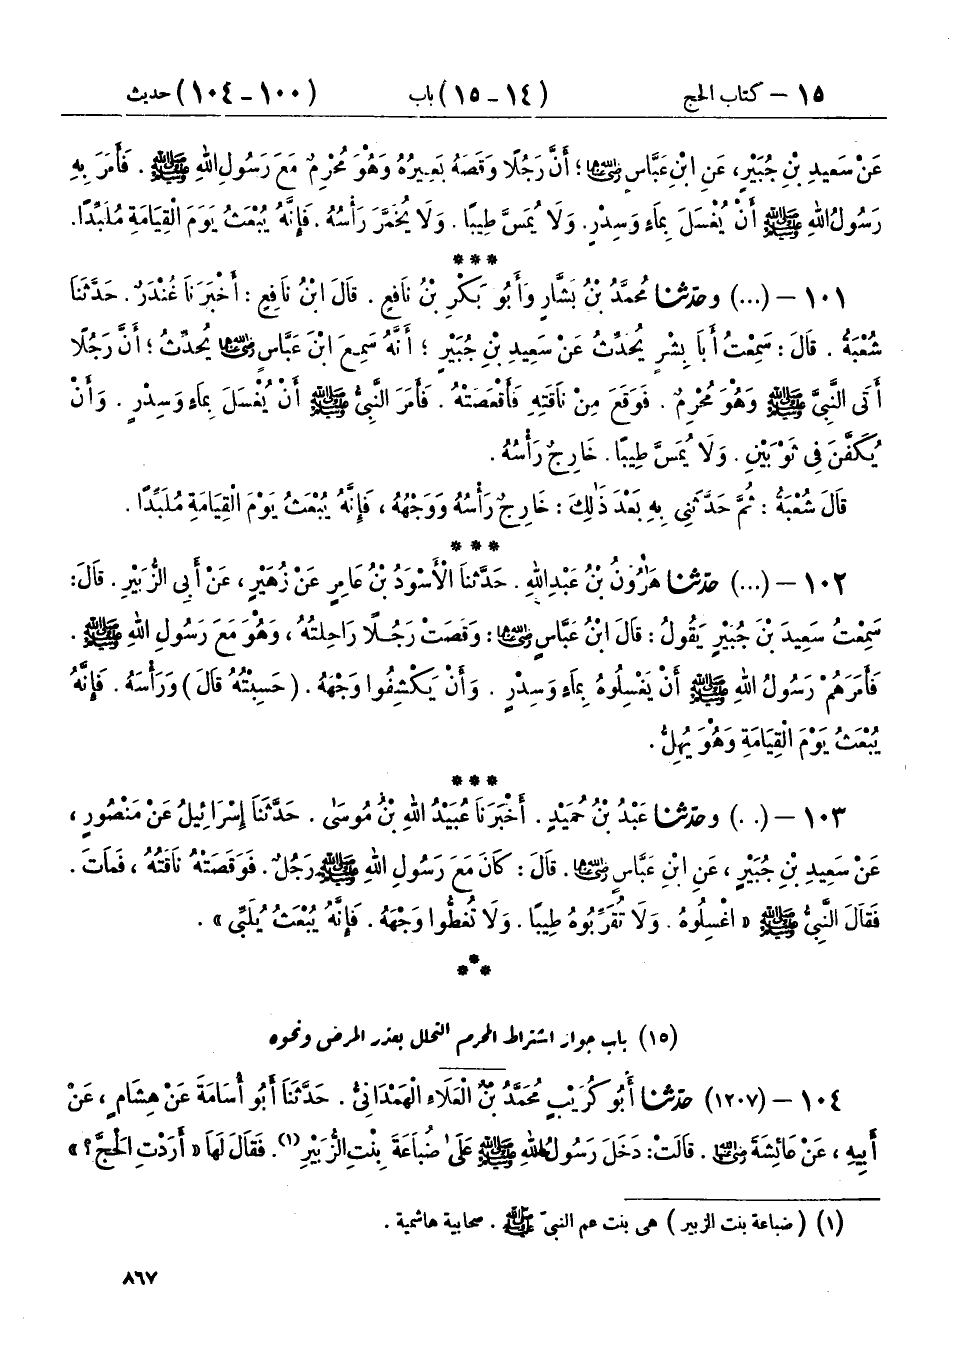 ١٥ – كتاب الحج (١٤ - ١٥) باب (١٠٠ - ١٠٤) حديث
عَنْ سَعِيدِ بْنِ جُبَيْرٍ، عَنِ ابْنِ عَبَّاسٍ رضي الله عنهما؛ أَنَّ رَجُلًا وَقَصَهُ بَعِيرُهُ وَهُوَ مُحْرِمٌ مَعَ رَسُولِ اللهِ ﷺ. فَأَمَرَ بِهِ
رَسُولُ اللهِ ﷺ أَنْ يُغْسَلَ بِمَاءٍ وَسِدْرٍ. وَلَا يُمَسَّ طِيبًا. وَلَا يُخَمَّرَ رَأْسُهُ. فَإِنَّهُ يُبْعَثُ يَوَمَ الْقِيَامَةِ مُلَبِّدًا.
***
١٠١ – (...) وحدّثنا مُحَمَّدُ بْنُ بَشَّارٍ وَأَبُو بَكْرِ بْنُ نَافِعٍ. قَالَ ابْنُ نَافِعٍ: أَخْبَرَنَا غُنْدَرٌ. حَدَّثَنَا
شُعْبَةُ. قَالَ: سَمِعْتُ أَبَا بِشْرٍ يُحَدِّثُ عَنْ سَعِيدِ بْنِ جُبَيْرٍ؛ أَنَّهُ سَمِعَ ابْنَ عَبَّاسٍ رضي الله عنهما يُحَدِّثُ؛ أَنَّ رَجُلًا
أَتَى النَّبِيَّ ﷺ وَهُوَ مُحْرِمٌ. فَوَقَعَ مِنْ نَاقَتِهِ فَأَقْعَصَتْهُ. فَأَمَرَ النَّبِيُّ ﷺ أَنْ يُغْسَلَ بِمَاءٍ وَسِدْرٍ. وَأَنْ
يُكَفَّنَ فِي ثَوْبَيْنِ. وَلَا يُمَسَّ طِيبًا. خَارِجٌ رَأْسُهُ.
قَالَ شُعْبَةُ: ثُمَّ حَدَّثَنِي بِهِ بَعْدَ ذَٰلِكَ: خَارِجٌ رَأْسُهُ وَوَجْهُهُ، فَإِنَّهُ يُبْعَثُ يَوْمَ الْقِيَامَةِ مُلَبِّدًا.
***
١٠٢ – (...) حدّثنا هَارُونُ بْنُ عَبْدِ اللهِ. حَدَّثَنَا الْأَسْوَدُ بْنُ عَامِرٍ عَنْ زُهَيْرٍ، عَنْ أَبِي الزُّبَيْرِ. قَالَ:
سَمِعْتُ سَعِيدَ بْنَ جُبَيْرٍ يَقُولُ: قَالَ ابْنُ عَبَّاسٍ رضي الله عنهما: وَقَصَتْ رَجُلًا رَاحِلَتُهُ، وَهُوَ مَعَ رَسُولِ اللهِ ﷺ.
فَأَمَرَهُمْ رَسُولُ اللهِ ﷺ أَنْ يَغْسِلُوهُ بِمَاءٍ وَسِدْرٍ. وَأَنْ يَكْشِفُوا وَجْهَهُ. (حَسِبْتُهُ قَالَ) وَرَأْسَهُ. فَإِنَّهُ
يُبْعَثُ يَوْمَ الْقِيَامَةِ وَهُوَ يُهِلُّ.
***
١٠٣ – (. .) وحدّثنا عَبْدُ بْنُ حُمَيْدٍ. أَخْبَرَنَا عُبَيْدُ اللهِ بْنُ مُوسَى. حَدَّثَنَا إِسْرَائِيلُ عَنْ مَنْصُورٍ،
عَنْ سَعِيدِ بْنِ جُبَيْرٍ، عَنِ ابْنِ عَبَّاسٍ رضي الله عنهما. قَالَ: كَانَ مَعَ رَسُولِ اللهِ ﷺ رَجُلٌ. فَوَقَصَتْهُ نَاقَتُهُ، فَمَاتَ.
فَقَالَ النَّبِيُّ ﷺ «اغْسِلُوهُ. وَلَا تُقَرِّبُوهُ طِيبًا. وَلَا تُغَطُّوا وَجْهَهُ. فَإِنَّهُ يُبْعَثُ يُلَبِّي».
***
(١٥) باب جواز اشتراط المحرم التحلل بعذر المرض ونحوه
١٠٤ – (١٢٠٧) حدّثنا أَبُو كُرَيْبٍ مُحَمَّدُ بْنُ الْعَلَاءِ الْهَمْدَانِيُّ. حَدَّثَنَا أَبُو أُسَامَةَ عَنْ هِشَامٍ، عَنْ
أَبِيهِ، عَنْ عَائِشَةَ رضي الله عنها. قَالَتْ: دَخَلَ رَسُولُ اللهِ ﷺ عَلَى ضُبَاعَةَ بِنْتِ الزُّبَيْرِ(١). فَقَالَ لَهَا «أَرَدْتِ الْحَجَّ؟»
(١) (ضباعة بنت الزبير) هي بنت عم النبيّ ﷺ. صحابية هاشمية.
٨٦٧